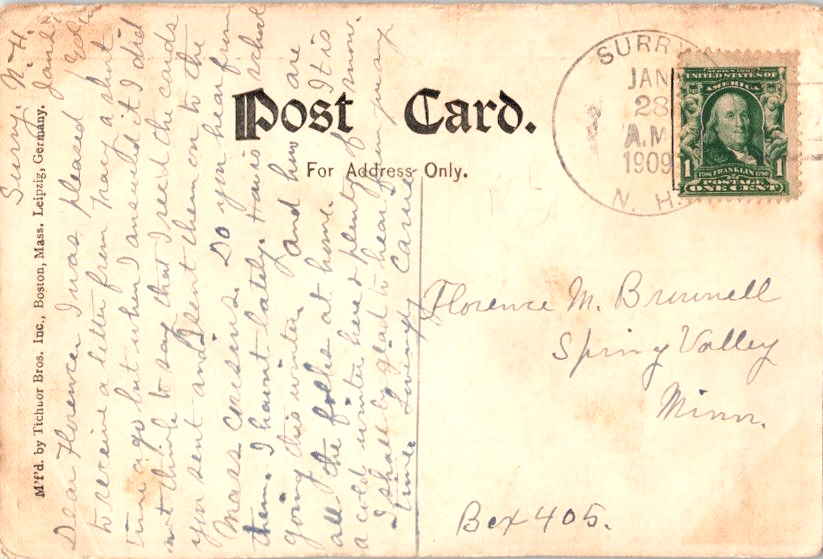 Post Card.
For Address Only.
SURRY
JAN
28
A.M.
1909
N. H.
SERIES 1902
UNITED STATES OF
AMERICA
1 1
1706 FRANKLIN 1790
POSTAGE
ONE CENT
M'f'd. by Tichnor Bros. Inc., Boston, Mass. Leipzig, Germany.
Surry, N.H.
Jan.
Dear Florence, I was pleased
to receive a letter from May a short
time ago but when I answered it I did
not think to say that I rec'd the cards
you sent and I sent them on to the
Mass cousins. Do you hear from
them. I havent lately. Is school
going this winter and how are
all the folks at home. It is
a cold winter here & plenty of snow.
I shall be glad to hear from you any
time Lovingly Carrie
Florence M. Brownell
Spring Valley
Minn.
Box 405.